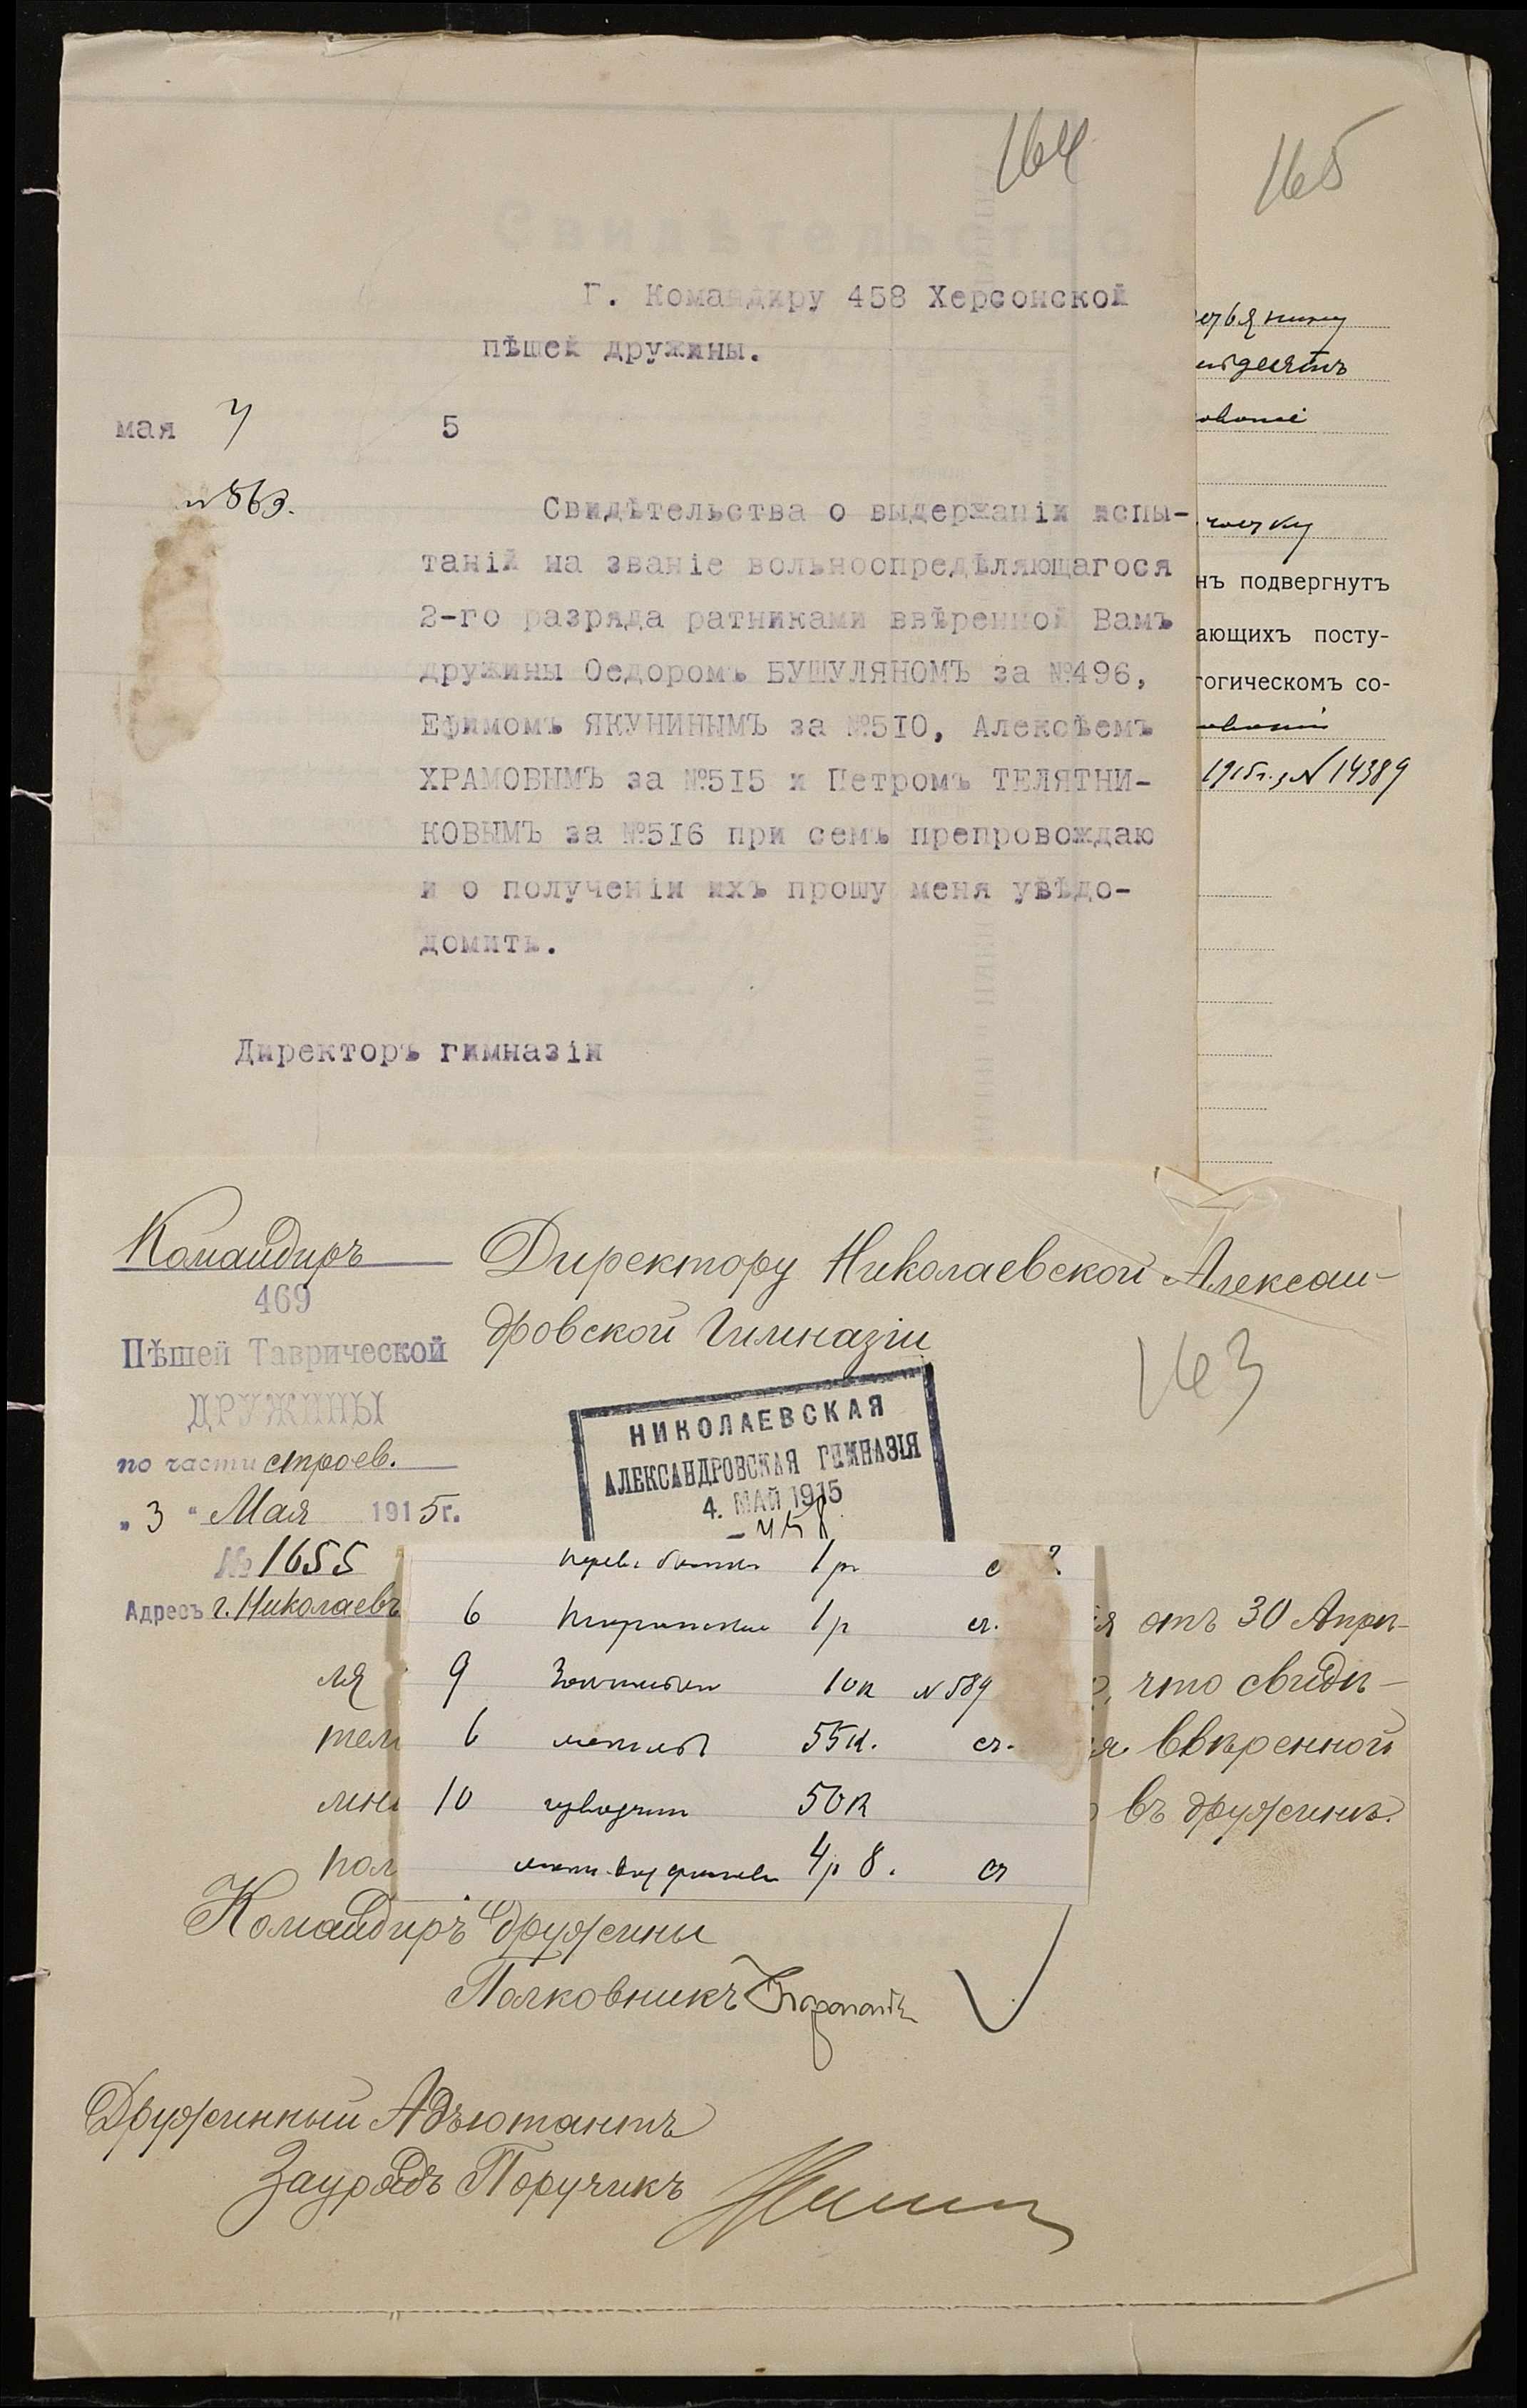 164
165
Г. Командиру 458 Херсонской
пѣшей дружины.
мая 7 5
№ 563.
Свидѣтельства о выдержаніи испы-
таній на званіе вольноопредѣляющагося
2-го разряда ратниками ввѣренной Вамъ
дружины Ѳедоромъ БУШУЛЯНОМЪ за №496,
Ефимомъ ЯКУНИНЫМЪ за №510, Алексѣемъ
ХРАМОВЫМЪ за №515 и Петромъ ТЕЛЯТНИ-
КОВЫМЪ за №516 при семъ препровождаю
и о полученіи ихъ прошу меня увѣдо-
домить.
Директоръ гимназіи
нъ подвергнутъ
ающихъ посту-
гогическомъ со-
1915г. № 14389
Командиръ
469
Пѣшей Таврической
ДРУЖИНЫ
по части строев.
„3“ Мая 1915г.
№ 1655
Адресъ г. Николаевъ
Директору Николаевской Алексан-
дровской Гимназіи
163
НИКОЛАЕВСКАЯ
АЛЕКСАНДРОВСКАЯ ГИМНАЗІЯ
4. МАЙ 1915
1р
6 1р
9 10к №589
6 55к.
10 50к
4р 8.
я отъ 30 Апрѣ-
ля что свидѣ-
тел я ввѣренной
въ дружинѣ.
пол
Командиръ дружины
Полковникъ
Дружинный Адъютантъ
Заурядъ Поручикъ